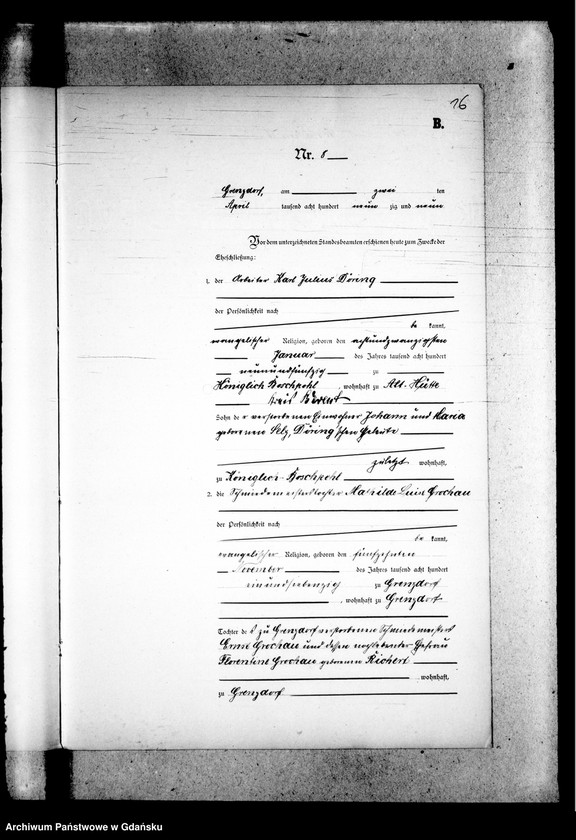 16
B.
Nr. 8
Grenzdorf, am zwei ten
April tausend acht hundert neun zig und neun
Vor dem unterzeichneten Standesbeamten erschienen heute zum Zwecke der
Eheschließung:
1. der Arbeiter Karl Julius Döring
der Persönlichkeit nach
be kannt,
evangelischer Religion, geboren den achtundzwanzigsten
Januar des Jahres tausend acht hundert
neunundfünfzig zu
Königlich Boschpohl, wohnhaft zu Alt-Hütte
Kreis Berent
Sohn der verstorbenen Einwohner Johann und Maria
geborenen Selz, Döring'schen Eheleute
zuletzt wohnhaft,
zu Königlich-Boschpohl
2. die Schmiedemeistertochter Mathilde Luise Grochau
der Persönlichkeit nach
be kannt,
evangelischer Religion, geboren den fünfzehnten
November des Jahres tausend acht hundert
einundsiebenzig zu Grenzdorf
, wohnhaft zu Grenzdorf
Tochter des zu Grenzdorf verstorbenen Schmiedemeisters
Grochau und dessen Ehefrau
Florentine Grochau geborenen Richert
wohnhaft,
zu Grenzdorf
Archiwum Państwowe w Gdańsku